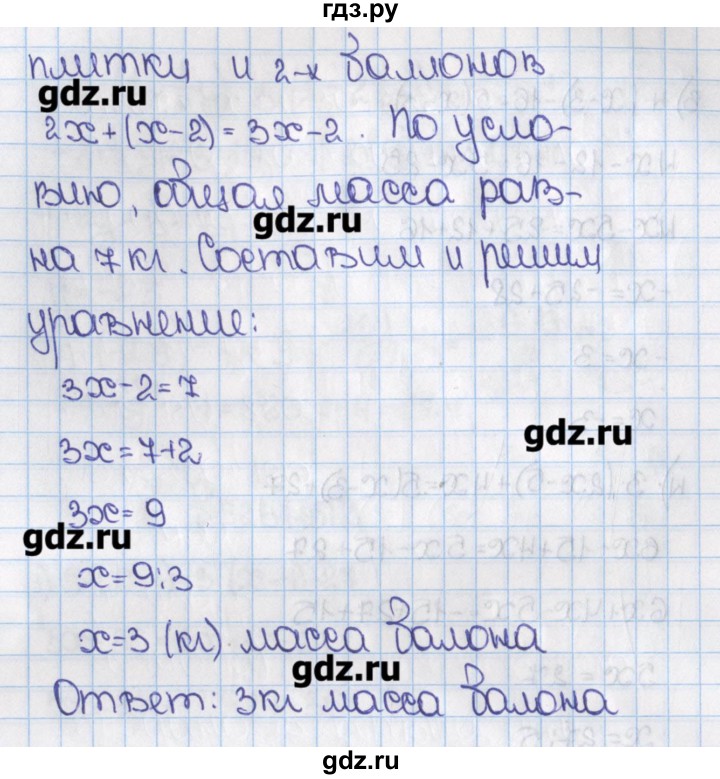 гдз.ру
плитки и 2-х баллонов
gdz.ru
2x+(x-2)=3x-2. По усло-
вию, общая масса рав-
gdz.ru
на 7кг. Составим и решим
уравнение:
3x-2=7
gdz.ru
3x=7+2
3x=9
gdz.ru
x=9:3
x=3 (кг) масса балона
gdz.ru
Ответ: 3кг масса балона
gdz.ru